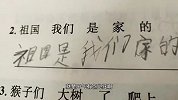 2.祖国 我们 是 家 的
祖国是我们家的
3.猴子们 大树 了 爬上